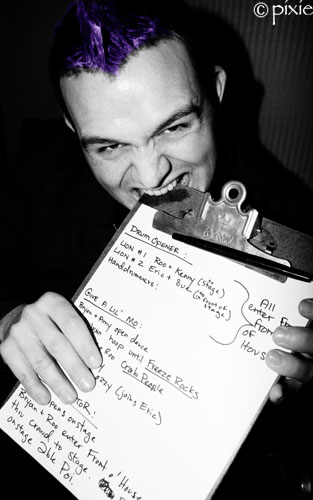 © pixie
DRUM OPENER:
LION #1 Roo + Kenny (stage)
LION #2 Eric +
(in front of stage)
Handdrummers:
All
enter
of
GIVE A LIL' MO:
Bryan + Amy open dance
hoop until Freeze Rocks
Roo Crab People
(joins Eric)
TOR:
opens onstage
Bryan + Roo enter Front o' House
thru crowd to stage.
onstage
Poi.